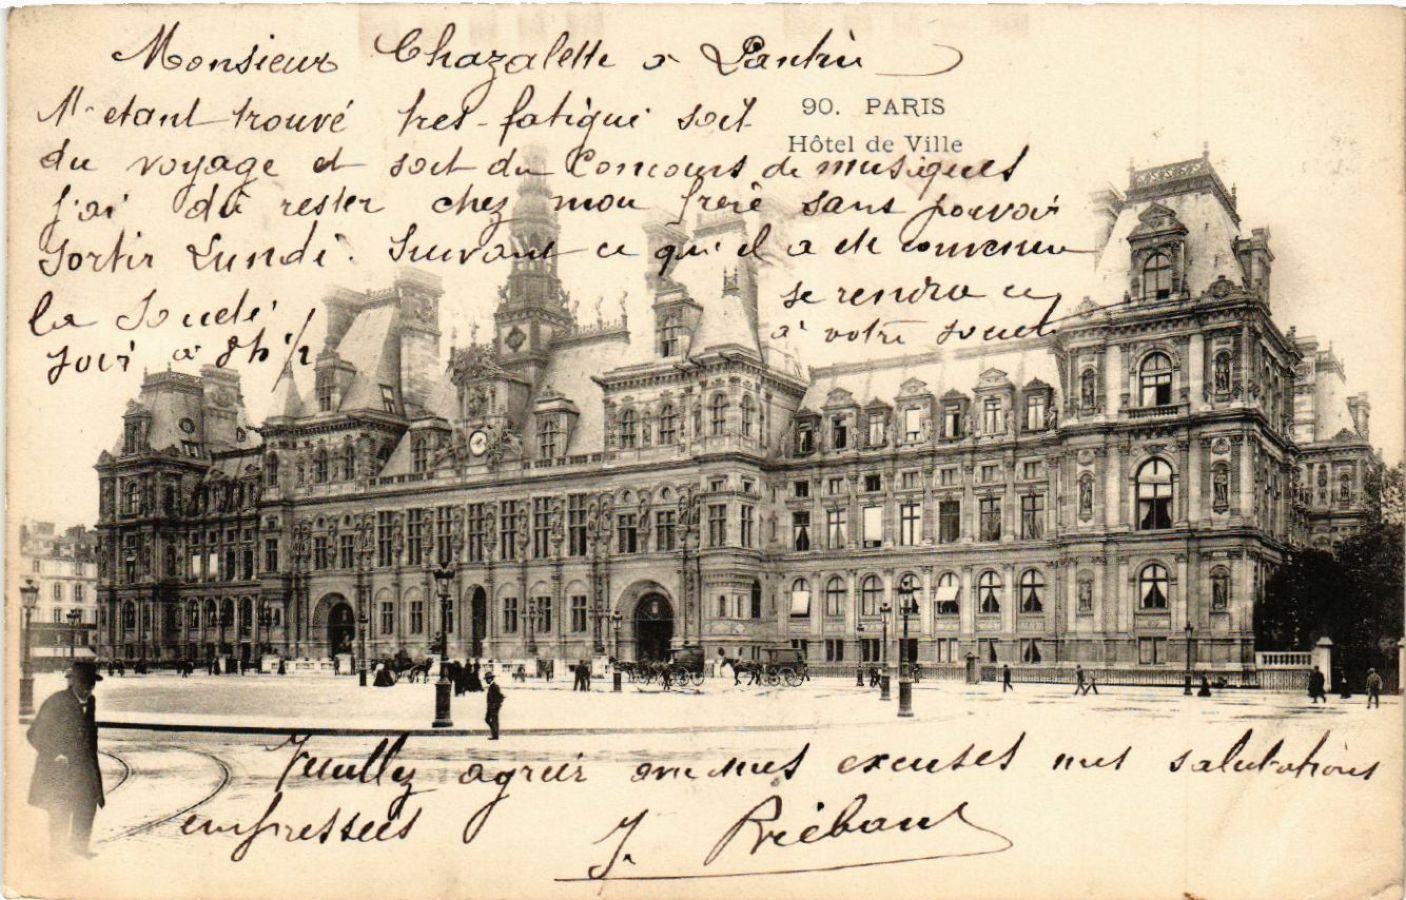 Monsieur Chazalette à Pantin
90. PARIS
Hôtel de Ville
M'etant trouvé tres-fatigué soit
du voyage et soit du Concours de musiques
j'ai dû rester chez mon frère sans pouvoir
sortir Lundi. Suivant ce qu'il a été convenu
la Société se rendra ce
soir à 8h ½ à votre société
Veuillez agréer avec mes excuses mes salutations
empressées
J. Riébaut